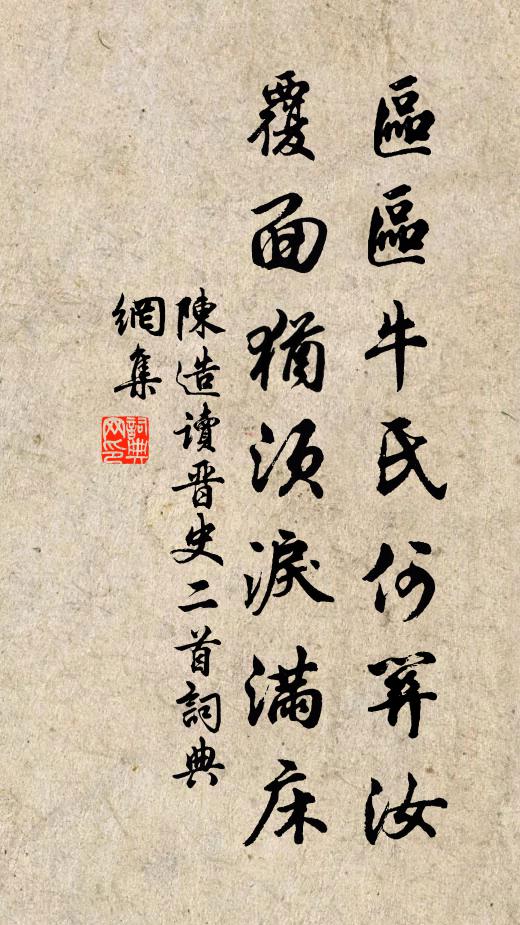 區區牛氏何筭汝
覆面猶須淚滿床
陳造讀晋史二首詞典
網集
詞典
网印